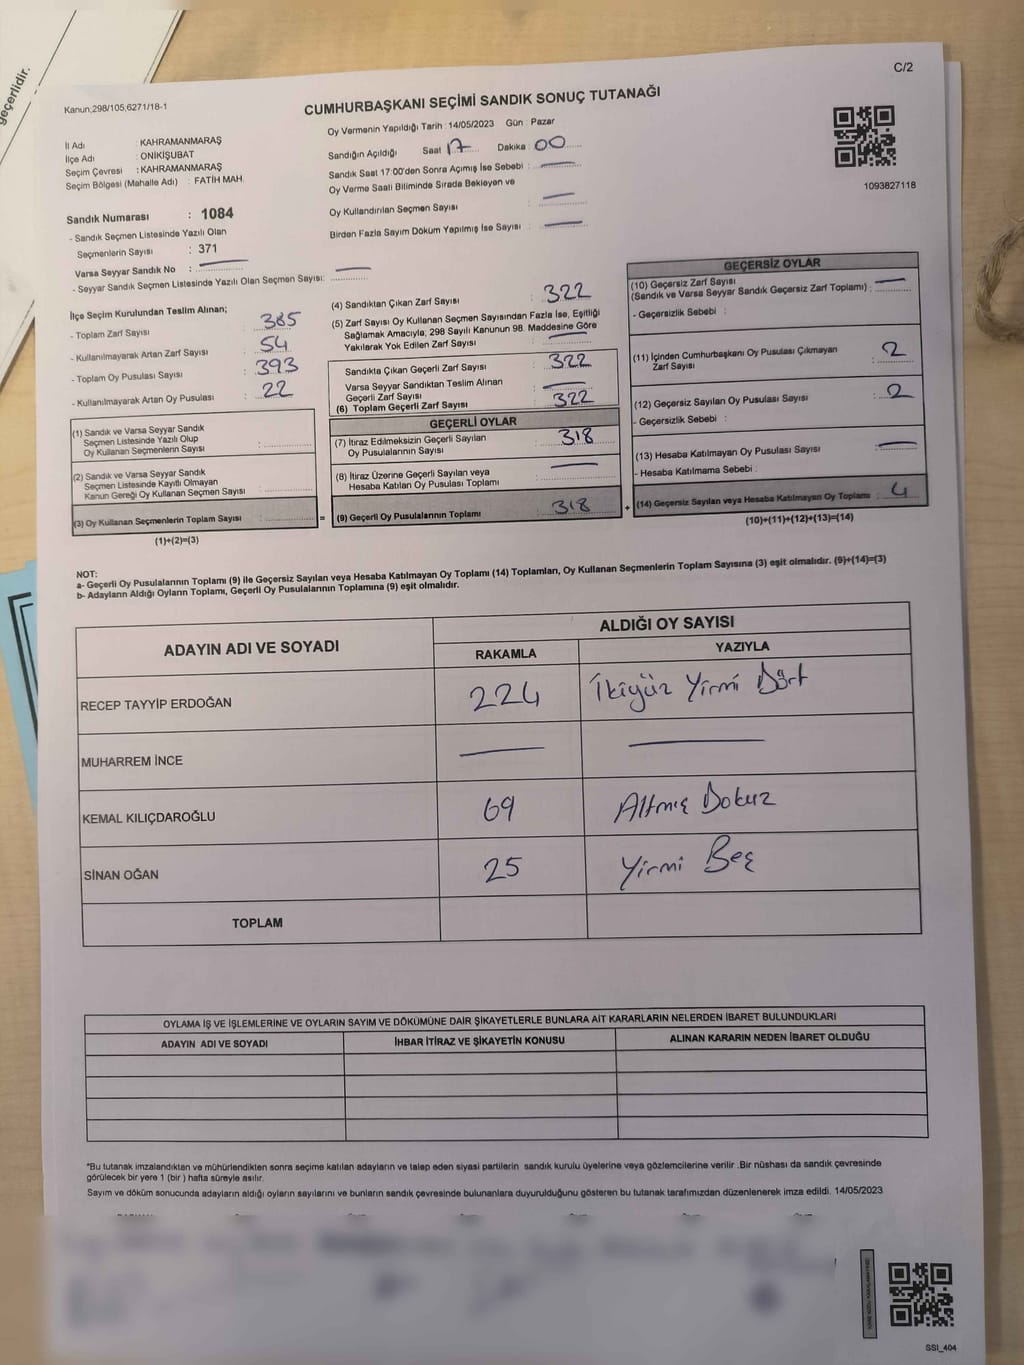 geçerlidir.
C/2
Kanun;298/105;6271/18-1
CUMHURBAŞKANI SEÇİMİ SANDIK SONUÇ TUTANAĞI
İl Adı : KAHRAMANMARAŞ
İlçe Adı : ONİKİŞUBAT
Seçim Çevresi : KAHRAMANMARAŞ
Seçim Bölgesi (Mahalle Adı) : FATİH MAH.
Sandık Numarası : 1084
- Sandık Seçmen Listesinde Yazılı Olan
Seçmenlerin Sayısı : 371
Varsa Seyyar Sandık No :
- Seyyar Sandık Seçmen Listesinde Yazılı Olan Seçmen Sayısı:
Oy Vermenin Yapıldığı Tarih : 14/05/2023 Gün : Pazar
Sandığın Açıldığı Saat 17 Dakika : 00
Sandık Saat 17:00'den Sonra Açımış İse Sebebi :
Oy Verme Saati Biliminde Sırada Bekleyen ve
Oy Kullandırılan Seçmen Sayısı :
Birden Fazla Sayım Döküm Yapılmış İse Sayısı :
1093827118
İlçe Seçim Kurulundan Teslim Alınan;
- Toplam Zarf Sayısı : 385
- Kullanılmayarak Artan Zarf Sayısı : 54
- Toplam Oy Pusulası Sayısı : 393
- Kullanılmayarak Artan Oy Pusulası : 22
(1) Sandık ve Varsa Seyyar Sandık
Seçmen Listesinde Yazılı Olup
Oy Kullanan Seçmenlerin Sayısı :
(2) Sandık ve Varsa Seyyar Sandık
Seçmen Listesinde Kayıtlı Olmayan
Kanun Gereği Oy Kullanan Seçmen Sayısı :
(3) Oy Kullanan Seçmenlerin Toplam Sayısı : =
(1)+(2)=(3)
(4) Sandıktan Çıkan Zarf Sayısı : 322
(5) Zarf Sayısı Oy Kullanan Seçmen Sayısından Fazla İse, Eşitliği
Sağlamak Amacıyla, 298 Sayılı Kanunun 98. Maddesine Göre
Yakılarak Yok Edilen Zarf Sayısı :
Sandıkta Çıkan Geçerli Zarf Sayısı : 322
Varsa Seyyar Sandıktan Teslim Alınan
Geçerli Zarf Sayısı :
(6) Toplam Geçerli Zarf Sayısı : 322
GEÇERLİ OYLAR
(7) İtiraz Edilmeksizin Geçerli Sayılan
Oy Pusulalarının Sayısı : 318
(8) İtiraz Üzerine Geçerli Sayılan veya
Hesaba Katılan Oy Pusulası Toplamı :
(9) Geçerli Oy Pusulalarının Toplamı : 318 +
GEÇERSİZ OYLAR
(10) Geçersiz Zarf Sayısı
(Sandık ve Varsa Seyyar Sandık Geçersiz Zarf Toplamı) :
- Geçersizlik Sebebi :
(11) İçinden Cumhurbaşkanı Oy Pusulası Çıkmayan
Zarf Sayısı : 2
(12) Geçersiz Sayılan Oy Pusulası Sayısı : 2
- Geçersizlik Sebebi :
(13) Hesaba Katılmayan Oy Pusulası Sayısı :
- Hesaba Katılmama Sebebi :
(14) Geçersiz Sayılan veya Hesaba Katılmayan Oy Toplamı : 4
(10)+(11)+(12)+(13)=(14)
NOT:
a- Geçerli Oy Pusulalarının Toplamı (9) ile Geçersiz Sayılan veya Hesaba Katılmayan Oy Toplamı (14) Toplamları, Oy Kullanan Seçmenlerin Toplam Sayısına (3) eşit olmalıdır. (9)+(14)=(3)
b- Adayların Aldığı Oyların Toplamı, Geçerli Oy Pusulalarının Toplamına (9) eşit olmalıdır.
ADAYIN ADI VE SOYADI
ALDIĞI OY SAYISI
RAKAMLA YAZIYLA
RECEP TAYYİP ERDOĞAN 224 İkiyüz Yirmi Dört
MUHARREM İNCE
KEMAL KILIÇDAROĞLU 69 Altmış Dokuz
SİNAN OĞAN 25 Yirmi Beş
TOPLAM
OYLAMA İŞ VE İŞLEMLERİNE VE OYLARIN SAYIM VE DÖKÜMÜNE DAİR ŞİKAYETLERLE BUNLARA AİT KARARLARIN NELERDEN İBARET BULUNDUKLARI
ADAYIN ADI VE SOYADI İHBAR İTİRAZ VE ŞİKAYETİN KONUSU ALINAN KARARIN NEDEN İBARET OLDUĞU
*Bu tutanak imzalandıktan ve mühürlendikten sonra seçime katılan adayların ve talep eden siyasi partilerin sandık kurulu üyelerine veya gözlemcilerine verilir .Bir nüshası da sandık çevresinde
görülecek bir yere 1 (bir ) hafta süreyle asılır.
Sayım ve döküm sonucunda adayların aldığı oyların sayılarını ve bunların sandık çevresinde bulunanlara duyurulduğunu gösteren bu tutanak tarafımızdan düzenlenerek imza edildi. 14/05/2023
SSI_404